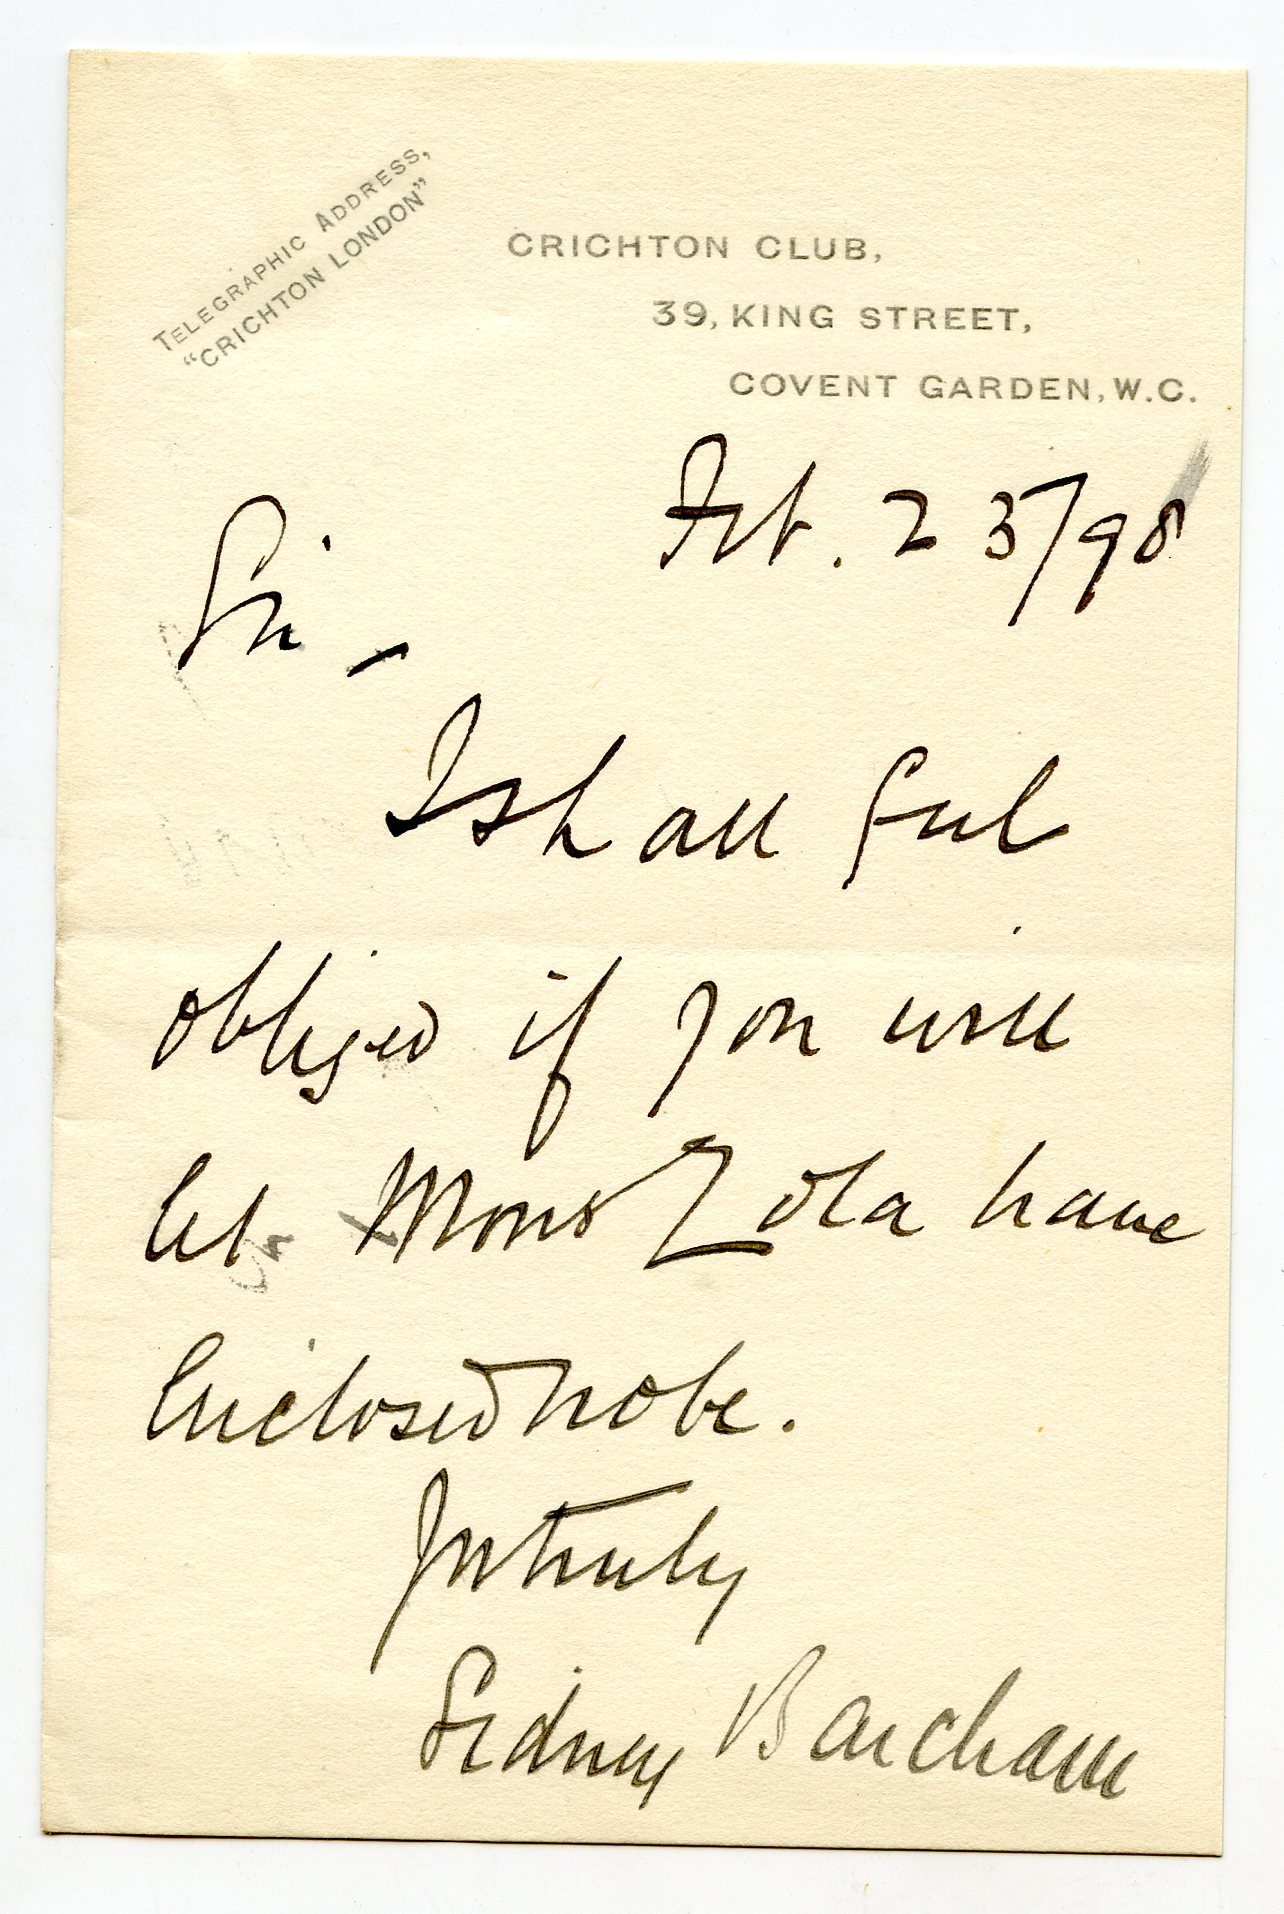 TELEGRAPHIC ADDRESS,
"CRICHTON LONDON"
CRICHTON CLUB,
39, KING STREET,
COVENT GARDEN, W.C.
Feb. 23/98
Sir –
I shall feel
obliged if you will
let Mons Zola have
enclosed note.
Yrs truly
Sidney Barcham